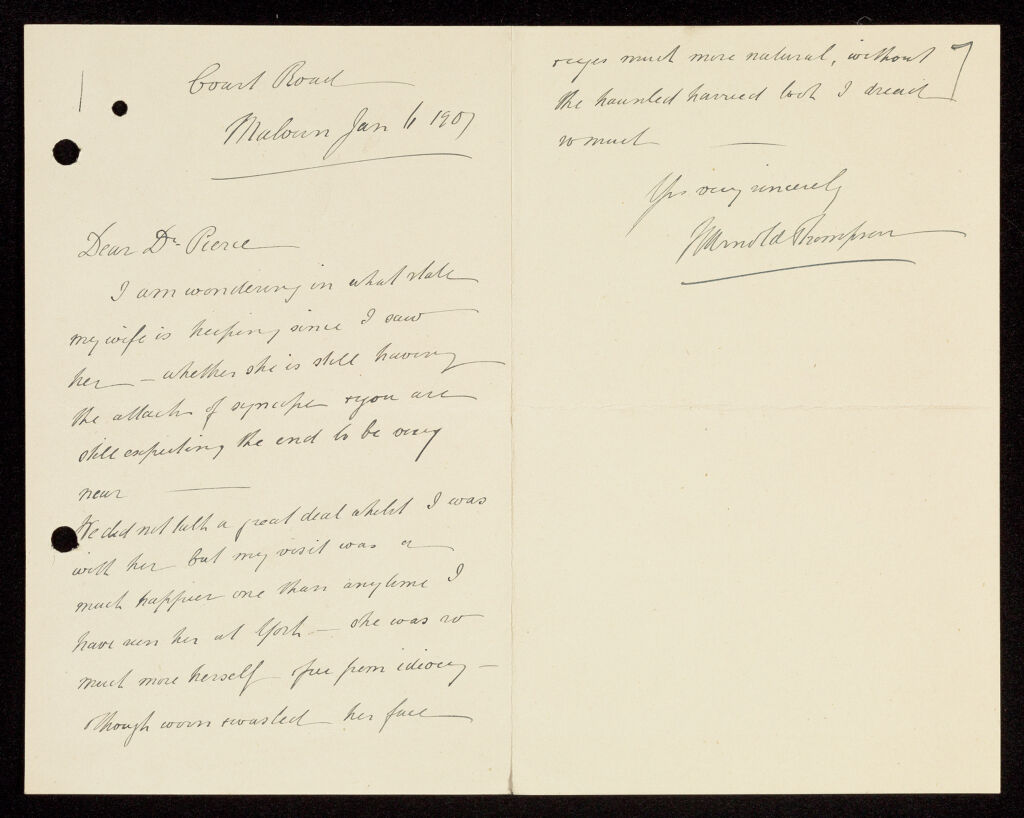 Court Road
Malvern Jan 6 1907
Dear Dr Pierce
I am wondering in what state
my wife is keeping since I saw
her – whether she is still having
the attacks of syncope & you are
still expecting the end to be very
near
We did not talk a great deal whilst I was
with her but my visit was a
much happier one than anytime I
have seen her at York – she was so
much more herself free from idiocy –
& though worn & wasted her face
& eyes much more natural, without
the haunted harried look I dread
so much
Yrs very sincerely
Arnold Thompson